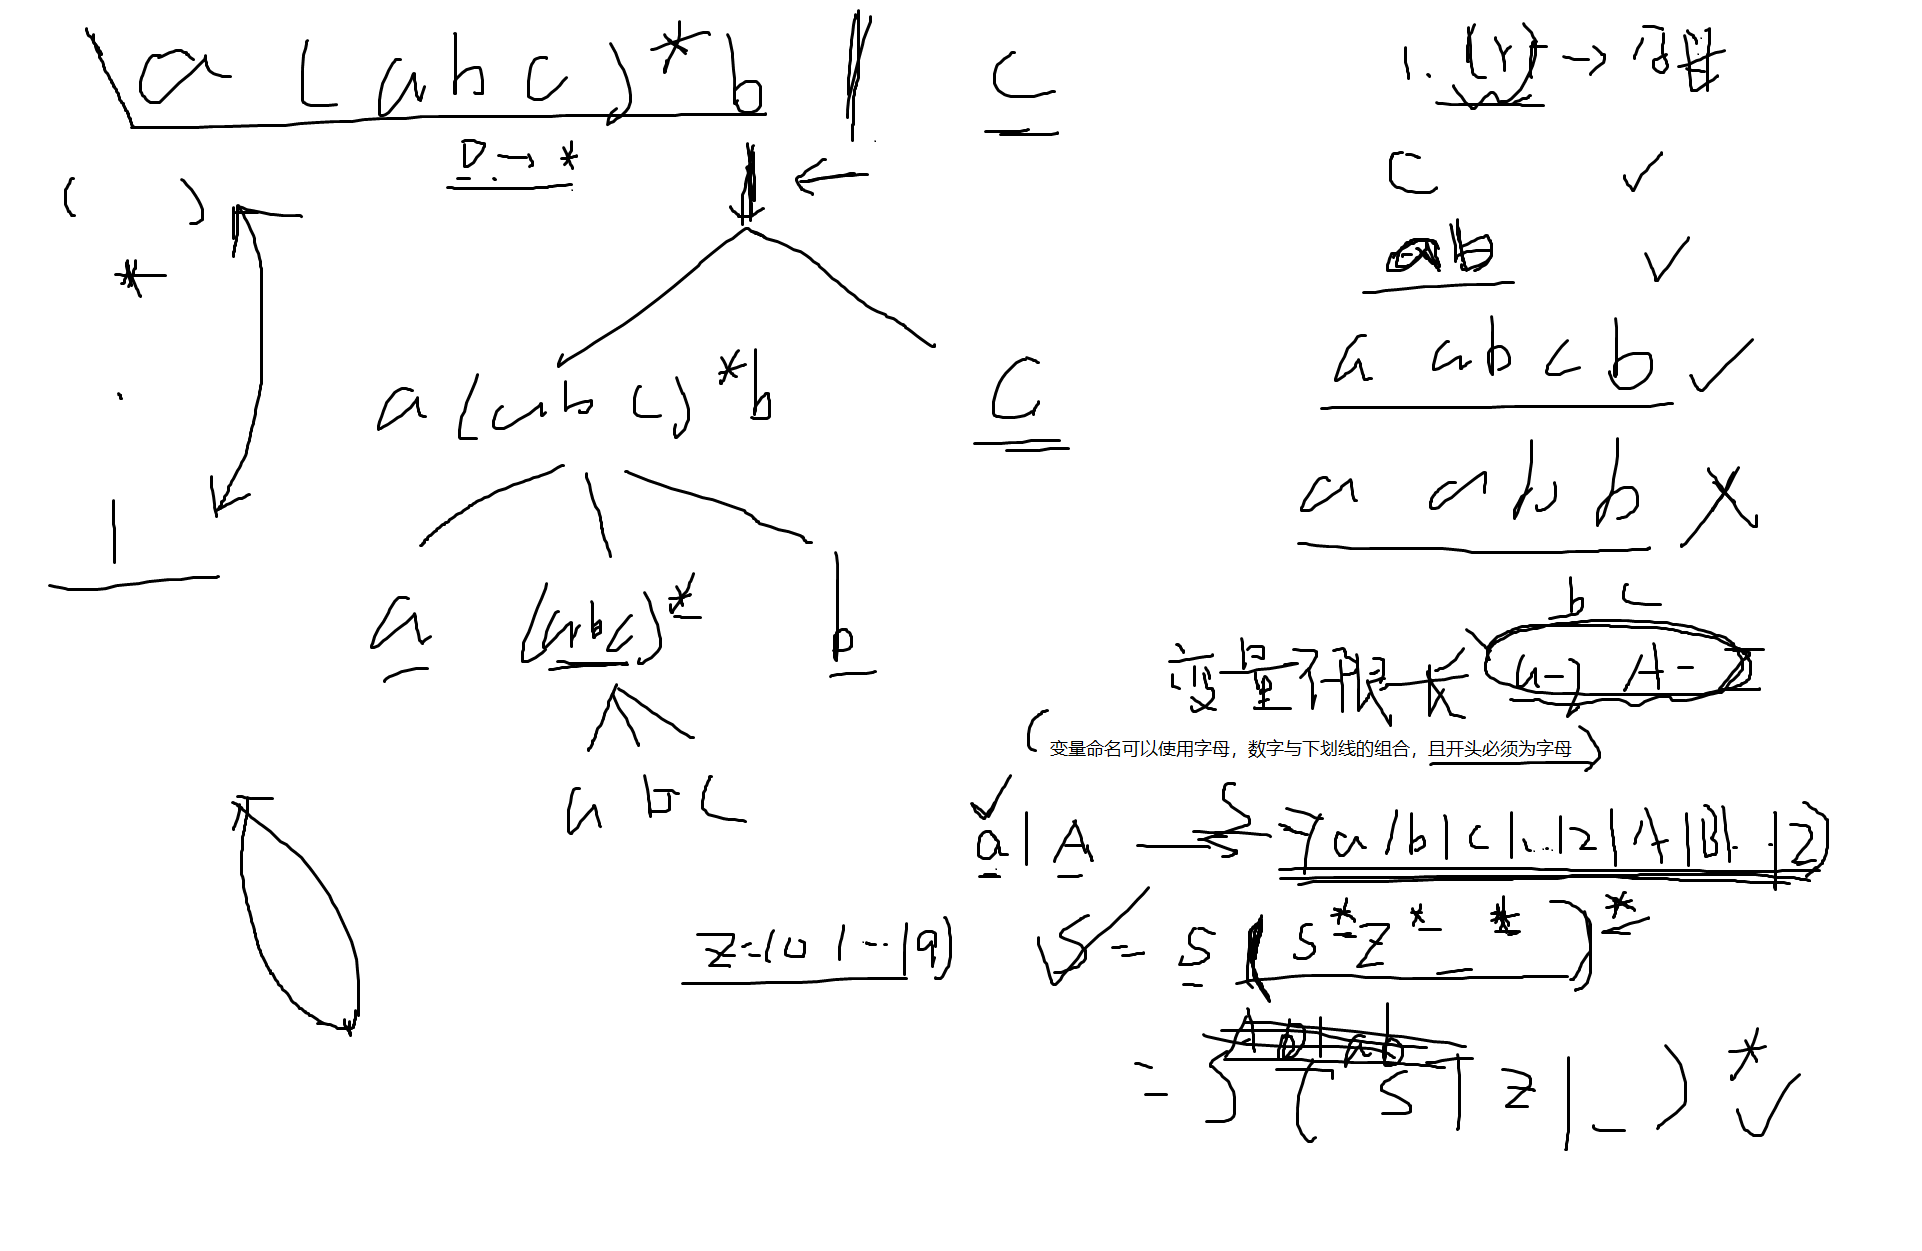 a(abc)*b | c
D → *
( )
*
.
|
a(abc)*b
c
a (abc)* b
a b c
1. (r) → 字母
c ✓
ab ✓
a abcb ✓
a abb ✗
b c
变量不限长 a-z A-Z
(变量命名可以使用字母，数字与下划线的组合，且开头必须为字母)
a | A → S = (a|b|c|...|z|A|B|..|Z)
z=(0 1 ... |9)
S = S (S*Z*_*)*
= S ( S | Z | _ )*